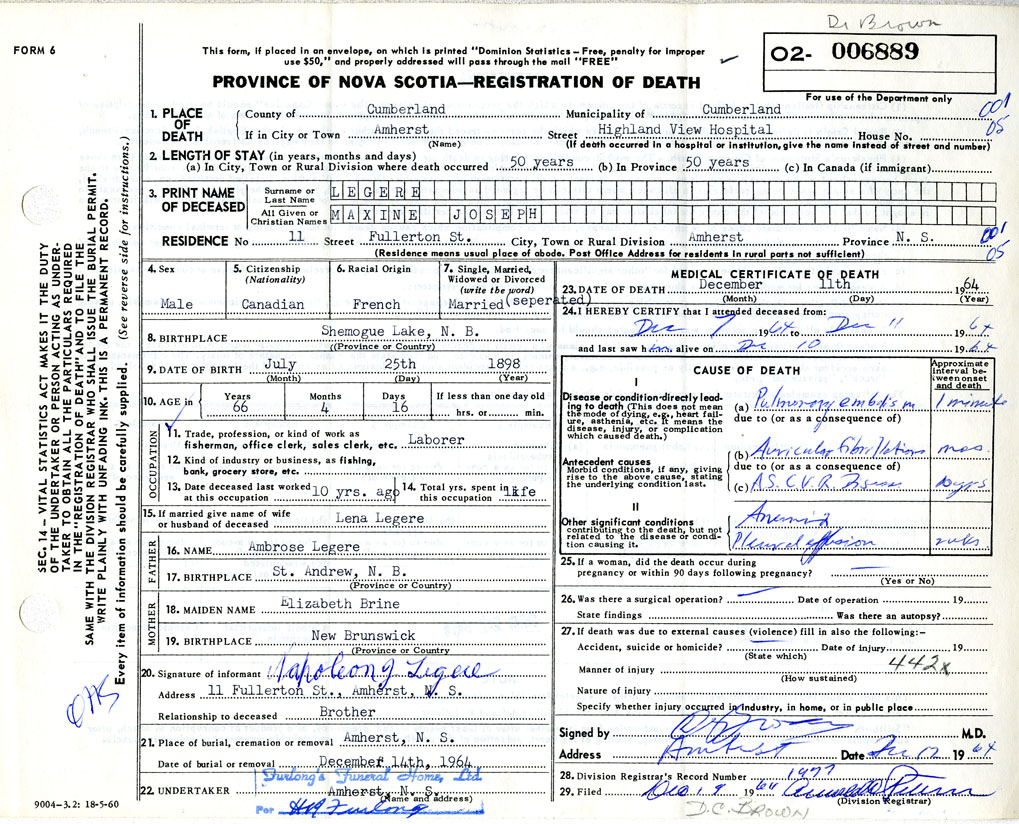 Dr Brown
FORM 6
This form, if placed in an envelope, on which is printed "Dominion Statistics – Free, penalty for improper
use $50," and properly addressed will pass through the mail "FREE"
02- 006889
PROVINCE OF NOVA SCOTIA—REGISTRATION OF DEATH
For use of the Department only
1. PLACE OF DEATH
County of Cumberland Municipality of Cumberland 001
If in City or Town Amherst Street Highland View Hospital House No. 05
(Name) (If death occurred in a hospital or institution, give the name instead of street and number)
2. LENGTH OF STAY (in years, months and days)
(a) In City, Town or Rural Division where death occurred 50 years (b) In Province 50 years (c) In Canada (if immigrant)
3. PRINT NAME OF DECEASED
Surname or Last Name LEGERE
All Given or Christian Names MAXINE JOSEPH
RESIDENCE No 11 Street Fullerton St. City, Town or Rural Division Amherst Province N. S. 001
05
(Residence means usual place of abode. Post Office Address for residents in rural parts not sufficient)
4. Sex
Male
5. Citizenship
(Nationality)
Canadian
6. Racial Origin
French
7. Single, Married,
Widowed or Divorced
(write the word)
Married (seperated)
8. BIRTHPLACE Shemogue Lake, N. B.
((Province or Country)
9. DATE OF BIRTH July 25th 1898
(Month) (Day) (Year)
10. AGE in
Years Months Days If less than one day old
66 4 16 hrs. or min.
OCCUPATION
11. Trade, profession, or kind of work as
fisherman, office clerk, sales clerk, etc. Laborer
12. Kind of industry or business, as fishing,
bank, grocery store, etc.
13. Date deceased last worked
at this occupation 10 yrs. ago
14. Total yrs. spent in
this occupation life
15. If married give name of wife
or husband of deceased Lena Legere
FATHER
16. NAME Ambrose Legere
17. BIRTHPLACE St. Andrew, N. B.
(Province or Country)
MOTHER
18. MAIDEN NAME Elizabeth Brine
19. BIRTHPLACE New Brunswick
(Province or Country
20. Signature of informant Napoleon J Legere
Address 11 Fullerton St., Amherst, N. S.
Relationship to deceased Brother
21. Place of burial, cremation or removal Amherst, N. S.
Date of burial or removal December 14th, 1964
Furlong's Funeral Home, Ltd.
22. UNDERTAKER Amherst, N. S.
(Name and address)
Per H A Furlong
9004-3.2: 18-5-60
MEDICAL CERTIFICATE OF DEATH
23. DATE OF DEATH December 11th 1964
(Month) (Day) (Year)
24. I HEREBY CERTIFY that I attended deceased from:
Dec 7 1964 to Dec 11 1964
and last saw him alive on Dec 10 1964
CAUSE OF DEATH
Approximate interval between onset and death
I
Disease or condition directly leading to death (This does not mean the mode of dying, e.g., heart failure, asthenia, etc. It means the disease, injury, or complication which caused death.)
(a) Pulmonary embolism 1 minute
due to (or as a consequence of)
Antecedent causes
Morbid conditions, if any, giving rise to the above cause, stating the underlying condition last.
(b) Auricular Fibrillation mos.
due to (or as a consequence of)
(c) A.S.C.V.R. Disease
II
Other significant conditions
contributing to the death, but not related to the disease or condition causing it.
Anemia
Pleural effusion
25. If a woman, did the death occur during
pregnancy or within 90 days following pregnancy?
(Yes or No)
26. Was there a surgical operation? Date of operation 19
State findings Was there an autopsy?
27. If death was due to external causes (violence) fill in also the following:–
Accident, suicide or homicide? Date of injury 19
(State which)
442x
Manner of injury
(How sustained)
Nature of injury
Specify whether injury occurred in industry, in home, or in public place
Signed by D C Brown M.D.
Address Amherst Date Dec 12 1964
28. Division Registrar's Record Number 1977
29. Filed Dec 19 1964
(Division Registrar)
D.C. BROWN
SEC. 14 – VITAL STATISTICS ACT MAKES IT THE DUTY
OF THE UNDERTAKER OR PERSON ACTING AS UNDER-
TAKER TO OBTAIN ALL THE PARTICULARS REQUIRED
IN THE "REGISTRATION OF DEATH" AND TO FILE THE
SAME WITH THE DIVISION REGISTRAR WHO SHALL ISSUE THE BURIAL PERMIT.
WRITE PLAINLY WITH UNFADING INK. THIS IS A PERMANENT RECORD.
Every item of information should be carefully supplied. (See reverse side for instructions.)